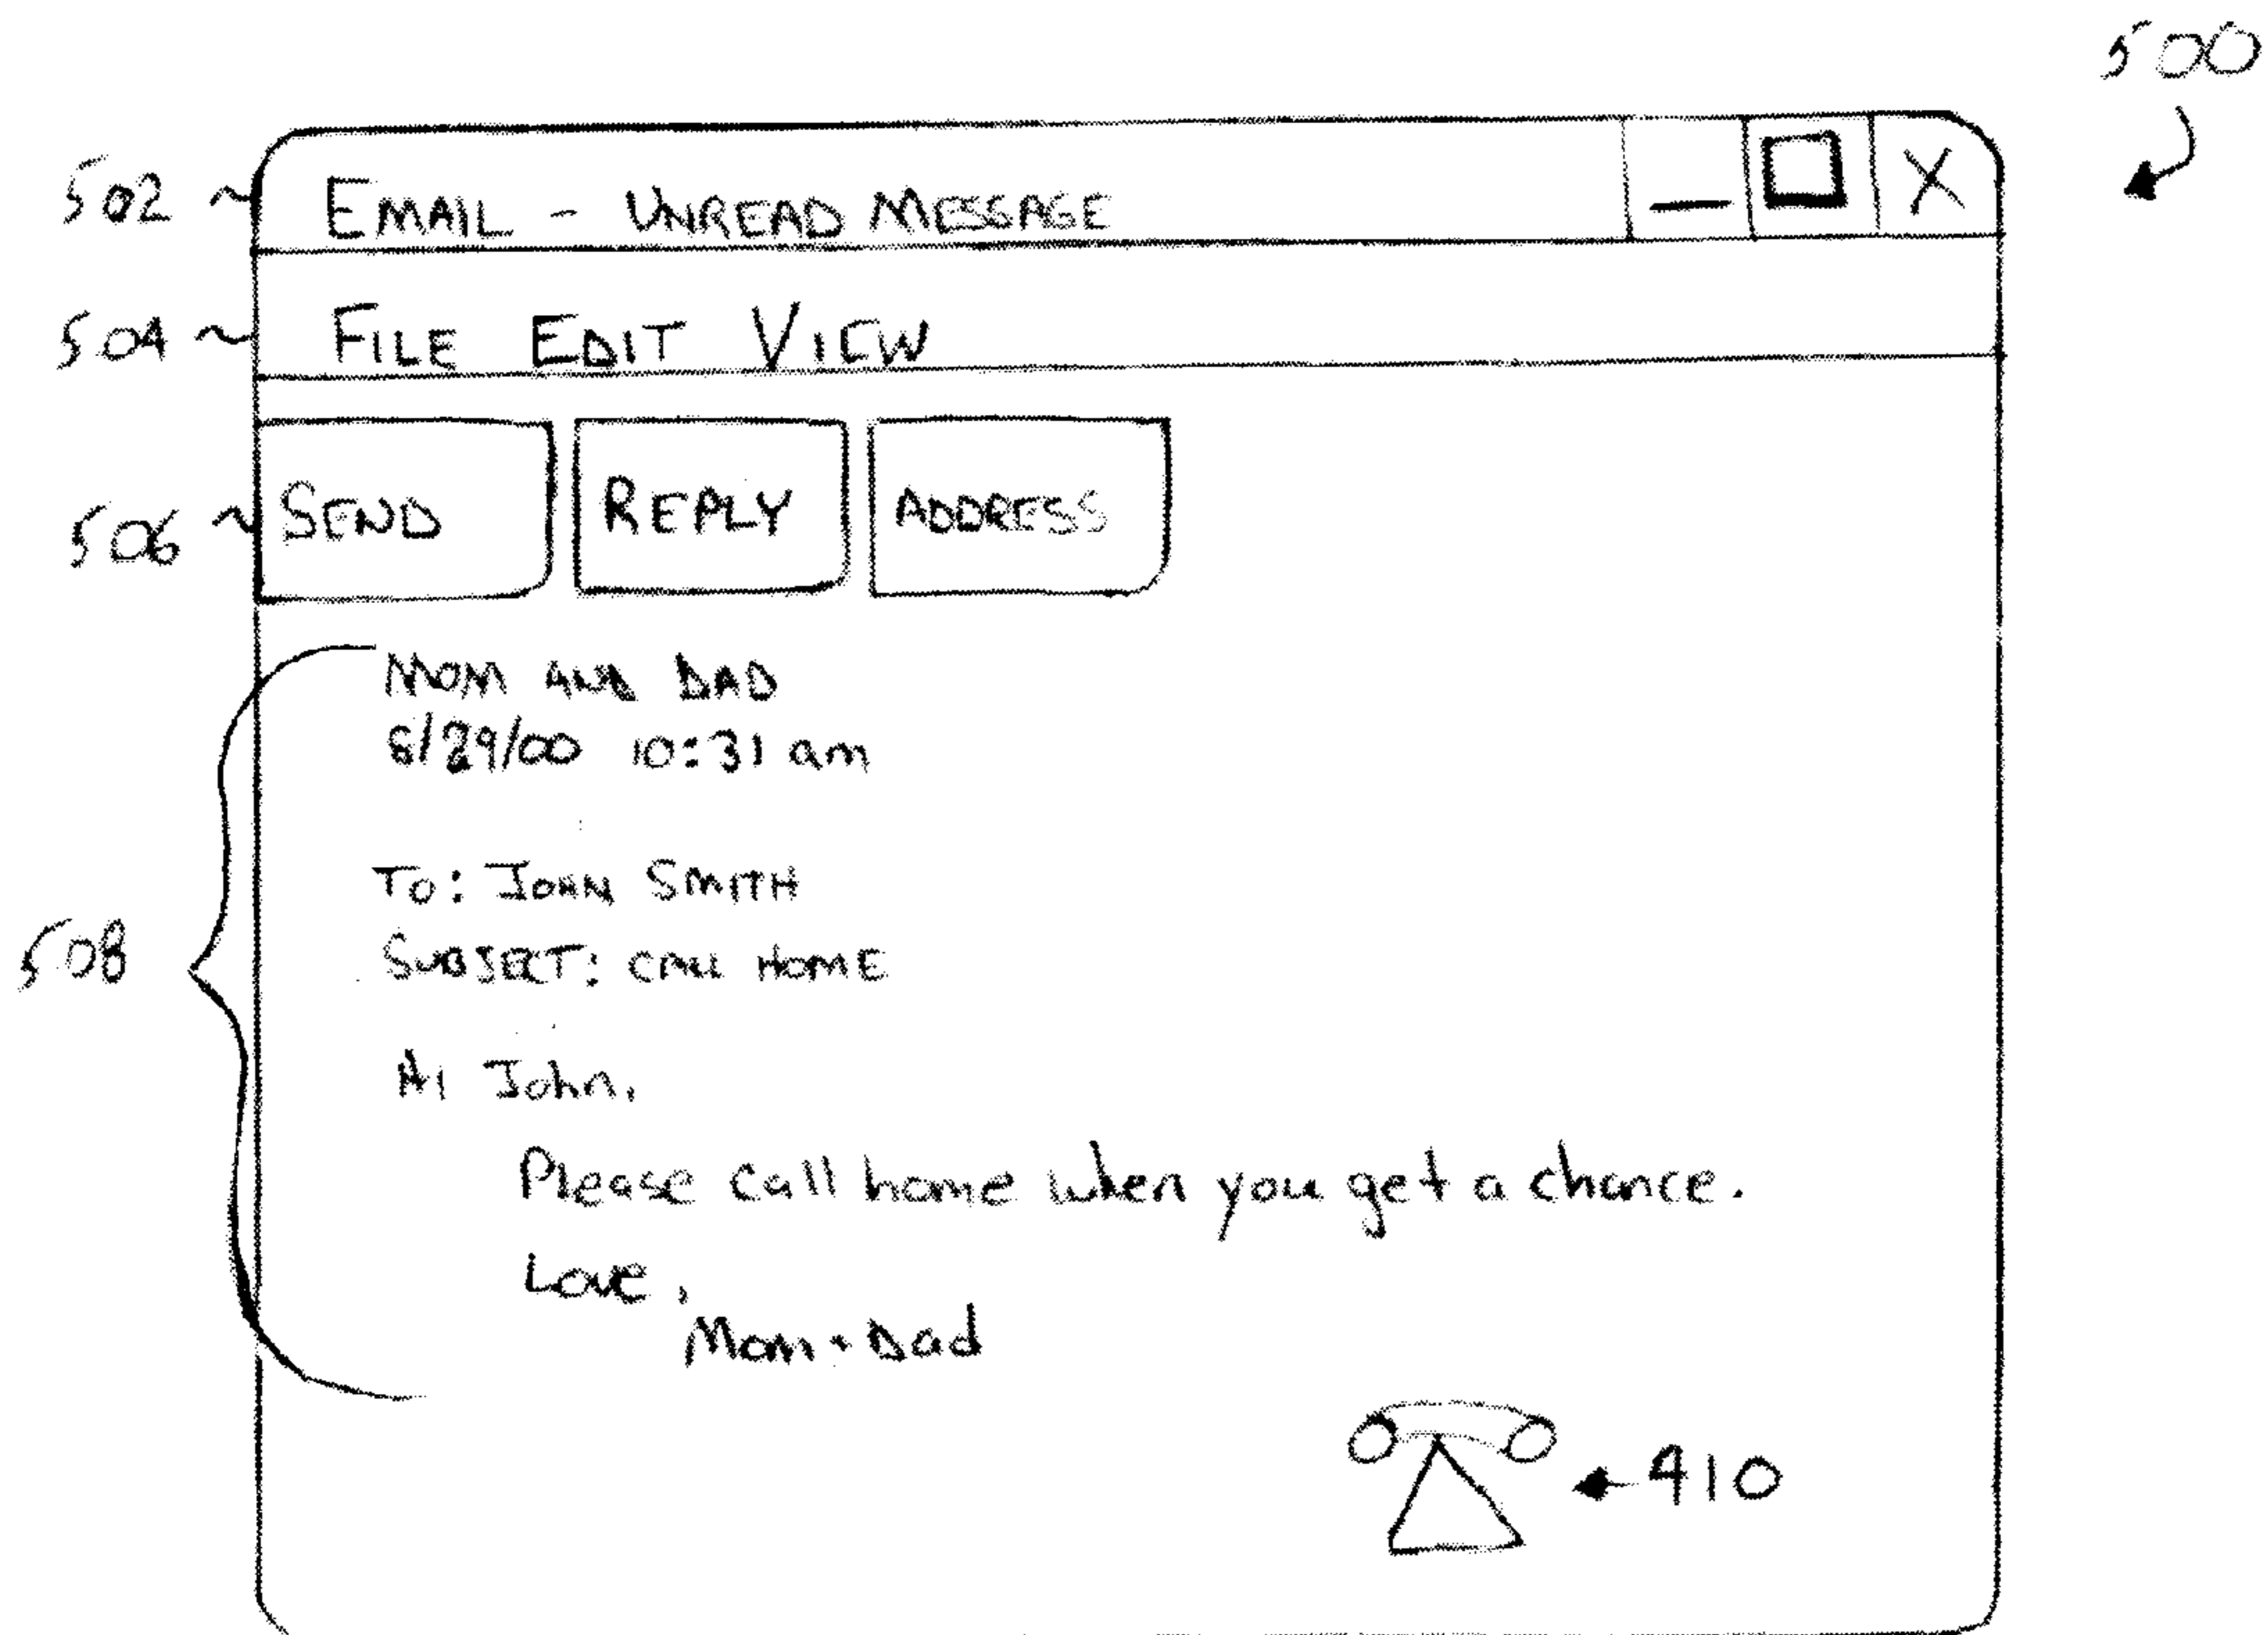 500
502 EMAIL - UNREAD MESSAGE X
504 FILE EDIT VIEW
506 SEND REPLY ADDRESS
MOM AND DAD
8/29/00 10:31 am
TO: JOHN SMITH
508 SUBJECT: CALL HOME
Hi John,
Please call home when you get a chance.
Love,
Mom + Dad
410